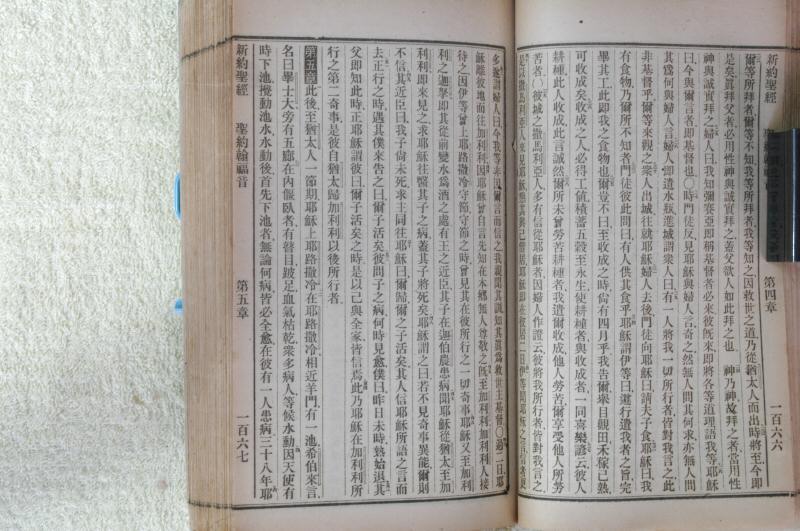 新約聖經 聖約翰福音 第四章 一百六六
爾等所拜者爾等不知我等所拜者我等知之因救世之道乃從猶太人而出時將至今即
是矣眞拜父者必用性神與誠實拜之蓋父欲人如此拜之也 神乃神故拜之者當用性
神與誠實拜之婦人曰我知彌賽亞即稱基督者必來彼旣來即將各等道理語我等耶穌
曰今與爾言者即基督也〇時門徒仗見耶穌與婦人言奇之然無人問其何求亦無人問
其爲何與婦人言婦人卽遺水瓶往城謂衆人曰有一人將我一切所行者皆對我言之此
非基督乎爾等來觀之衆人出城往就耶穌婦人去後門徒向耶穌曰請夫子食耶穌曰我
有食物乃爾所不知者門徒彼此問曰有人供其食乎耶穌謂伊等曰遵行遣我者之旨完
畢其工此即我之食物也爾豈不曰至收成之時尙有四月乎我告爾衆目觀田禾稼已熟
可收成矣收成之人必得工値積蓄五穀至永生使耕種者與收成者一同喜樂諺云彼人
耕種此人收成此言誠然爾所未曾勞苦耕種者我遣爾收成他人勞苦爾享受他人所勞
苦者〇彼城之撒馬利亞人多有信從耶穌者因婦人作證云彼將我所行者皆對我言之
多遂謂婦人曰今我等
利之迦拏即其從前變水爲酒之處有王之近臣其子在迦伯農患病聞耶穌從猶太至加
利利即來見之求耶穌往醫其子之病蓋其子將死矣耶穌謂之曰若不見奇事異能爾則
不信其近臣曰我子尙未死求主同往耶穌曰爾歸爾之子活矣其人信耶穌所語之言而
去正行之時遇其僕來告之曰爾子活矣彼問子之病何時見愈僕曰昨日未時熱始退其
父即知此時正耶穌謂彼曰爾子活矣之時是以己與全家皆信焉此乃耶穌在加利利所
行之第二奇事是彼自猶太歸加利利以後所行者
第五章 此後至猶太人一節期耶穌上耶路撒冷在耶路撒冷相近羊門有一池希伯來言
名曰畢士大旁有五廊在內偃臥者有瞽目跛足血氣枯乾衆多病人等候水動因天使有
時下池攪動池水水動後首先下池者無論何病皆必全愈在彼有一人患病三十八年耶
新約聖經 聖約翰福音 第五章 一百六七